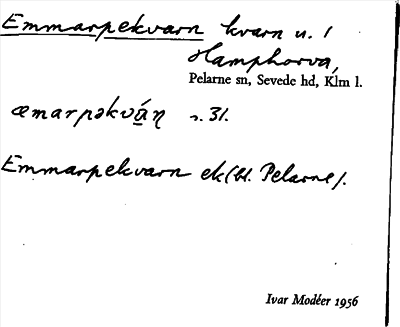 Emmarpekvarn kvarn u. 1
Hamphorva,
Pelarne sn, Sevede hd, Klm l.
æmarpəkvá̱ɳ s. 31.
Emmarpekvarn ek (bl. Pelarne).
Ivar Modéer 1956